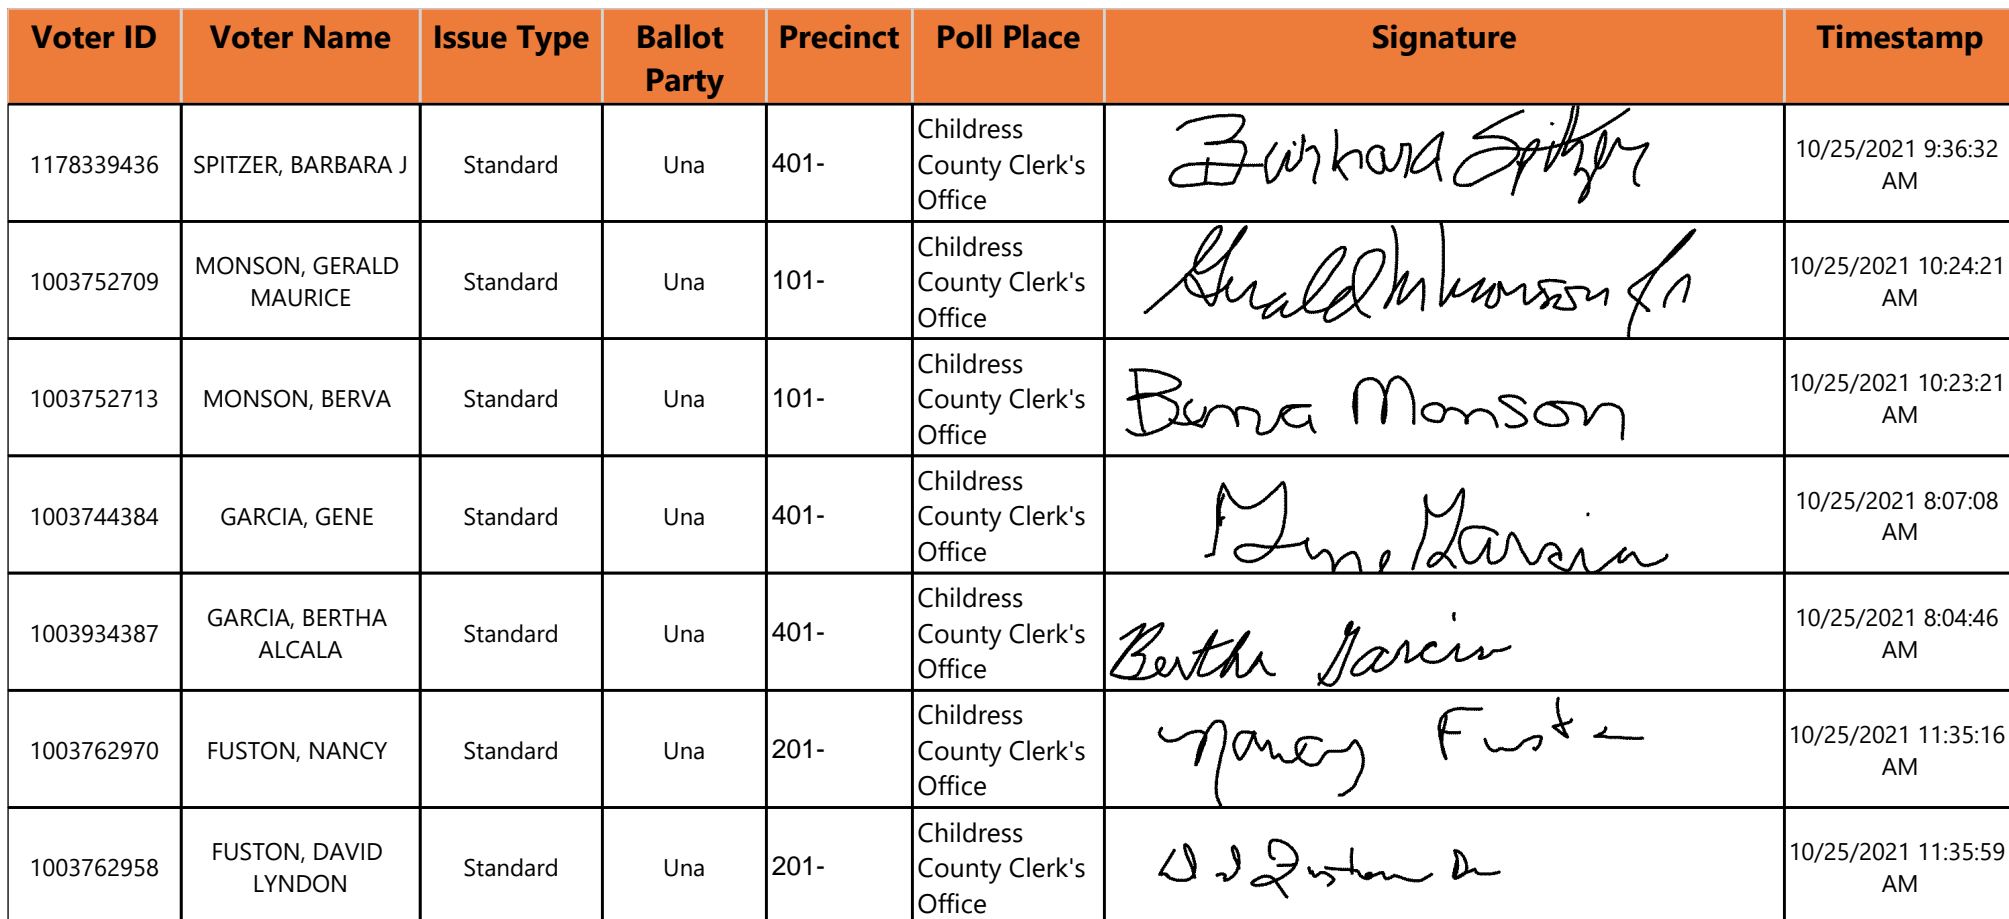 Voter ID Voter Name Issue Type Ballot Party Precinct Poll Place Signature Timestamp
1178339436 SPITZER, BARBARA J Standard Una 401- Childress County Clerk's Office Barbara Spitzer 10/25/2021 9:36:32 AM
1003752709 MONSON, GERALD MAURICE Standard Una 101- Childress County Clerk's Office Gerald M Monson Jr 10/25/2021 10:24:21 AM
1003752713 MONSON, BERVA Standard Una 101- Childress County Clerk's Office Berva Monson 10/25/2021 10:23:21 AM
1003744384 GARCIA, GENE Standard Una 401- Childress County Clerk's Office Gene Garcia 10/25/2021 8:07:08 AM
1003934387 GARCIA, BERTHA ALCALA Standard Una 401- Childress County Clerk's Office Bertha Garcia 10/25/2021 8:04:46 AM
1003762970 FUSTON, NANCY Standard Una 201- Childress County Clerk's Office Nancy Fuston 10/25/2021 11:35:16 AM
1003762958 FUSTON, DAVID LYNDON Standard Una 201- Childress County Clerk's Office Fuston 10/25/2021 11:35:59 AM